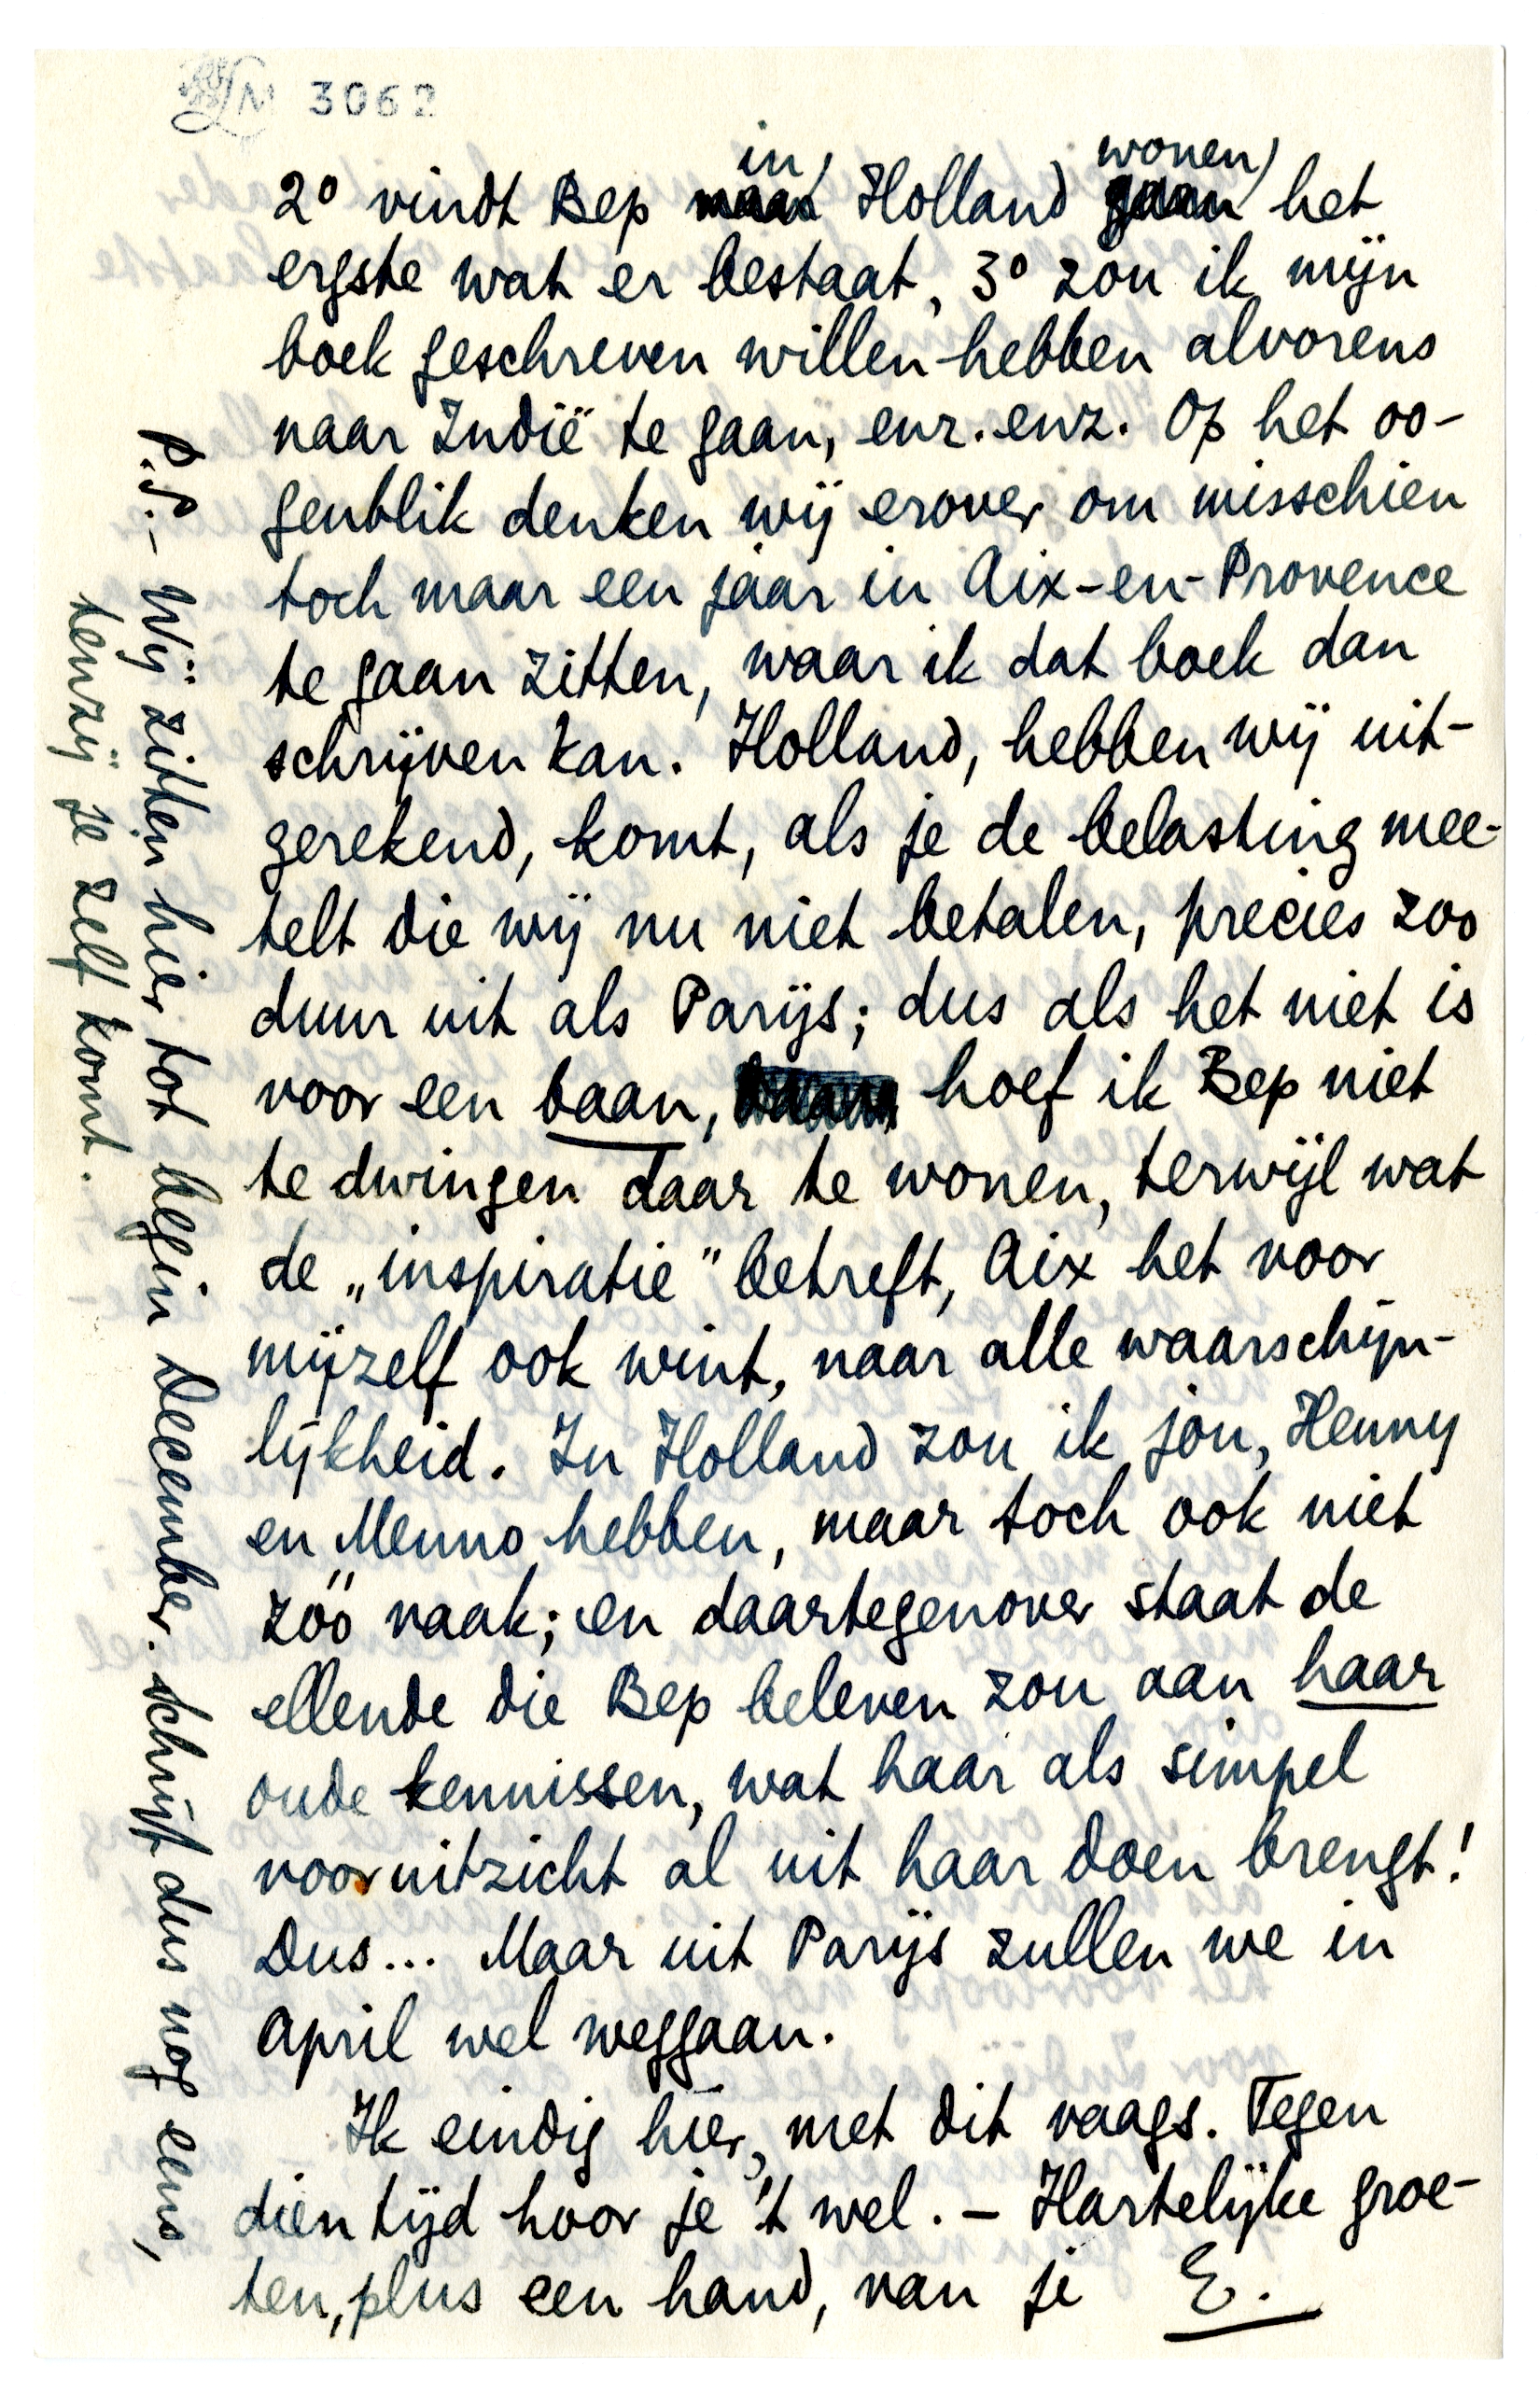 3062
2° vindt Bep in Holland wonen het
ergste wat er bestaat, 3° zou ik mijn
boek geschreven willen hebben alvorens
naar Indië te gaan, enz. enz. Op het oo-
genblik denken wij erover om misschien
toch maar een jaar in Aix-en-Provence
te gaan zitten, waar ik dat boek dan
schrijven kan. Holland, hebben wij uit-
gerekend, komt, als je de belasting mee-
telt die wij nu niet betalen, precies zoo
duur uit als Parijs; dus als het niet is
voor een baan, hoef ik Bep niet
te dwingen daar te wonen, terwijl wat
de „inspiratie” betreft, Aix het voor
mijzelf ook wint, naar alle waarschijn-
lijkheid. In Holland zou ik jou, Henny
en Menno hebben, maar toch ook niet
zóó vaak; en daartegenover staat de
ellende die Bep beleven zou aan haar
oude kennissen, wat haar als simpel
vooruitzicht al uit haar doen brengt!
Dus... Maar uit Parijs zullen we in
April wel weggaan.
Ik eindig hier, met dit vaags. Tegen
dien tijd hoor je 't wel. – Hartelijke groe-
ten, plus een hand, van je E.
P.S. – Wij zitten hier tot begin December. Schrijf dus nog eens,
tenzij je zelf komt.